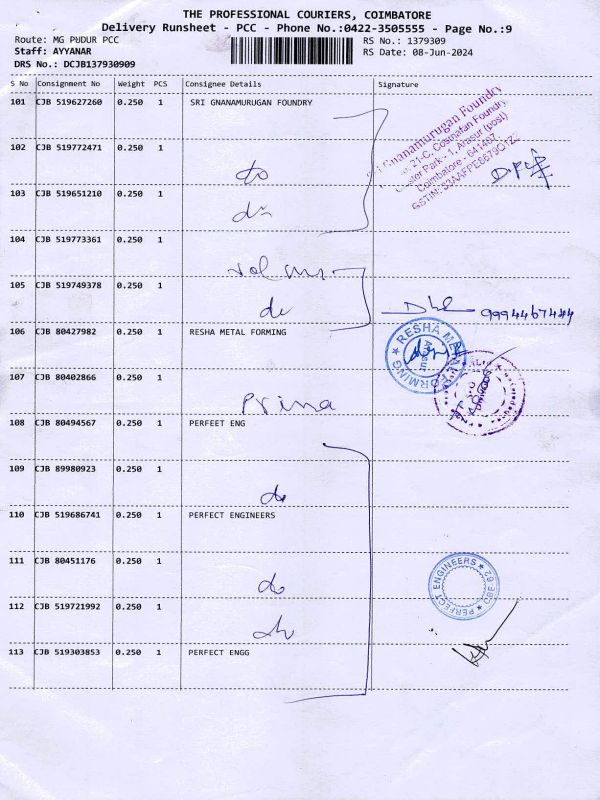 THE PROFESSIONAL COURIERS, COIMBATORE
Delivery Runsheet - PCC - Phone No.:0422-3505555 - Page No.:9
Route: MG PUDUR PCC RS No.: 1379309
Staff: AYYANAR RS Date: 08-Jun-2024
DRS No.: DCJB137930909
S No Consignment No Weight PCS Consignee Details Signature
101 CJB 519627260 0.250 1 SRI GNANAMURUGAN FOUNDRY
Sri Gnanamurugan Foundry
21-C, Cosmafan Foundry
Cluster Park - 1, Arasur (post)
Coimbatore - 641407.
102 CJB 519772471 0.250 1
do
103 CJB 519651210 0.250 1
do
104 CJB 519773361 0.250 1
105 CJB 519749378 0.250 1
do
9994467444
106 CJB 80427982 0.250 1 RESHA METAL FORMING
RESHA METAL FORMING
107 CJB 80402866 0.250 1
Prima
108 CJB 80494567 0.250 1 PERFEET ENG
109 CJB 89980923 0.250 1
do
110 CJB 519686741 0.250 1 PERFECT ENGINEERS
111 CJB 80451176 0.250 1
do
PERFECT ENGINEERS
CBE-62
112 CJB 519721992 0.250 1
do
113 CJB 519303853 0.250 1 PERFECT ENGG